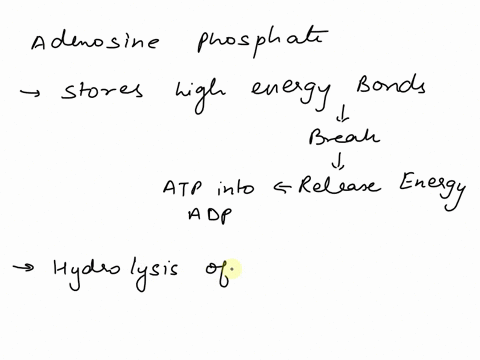 Adenosine Phosphate
→ stores high energy Bonds
↓
Break
↓
ATP into ← Release Energy
ADP
→ Hydrolysis of